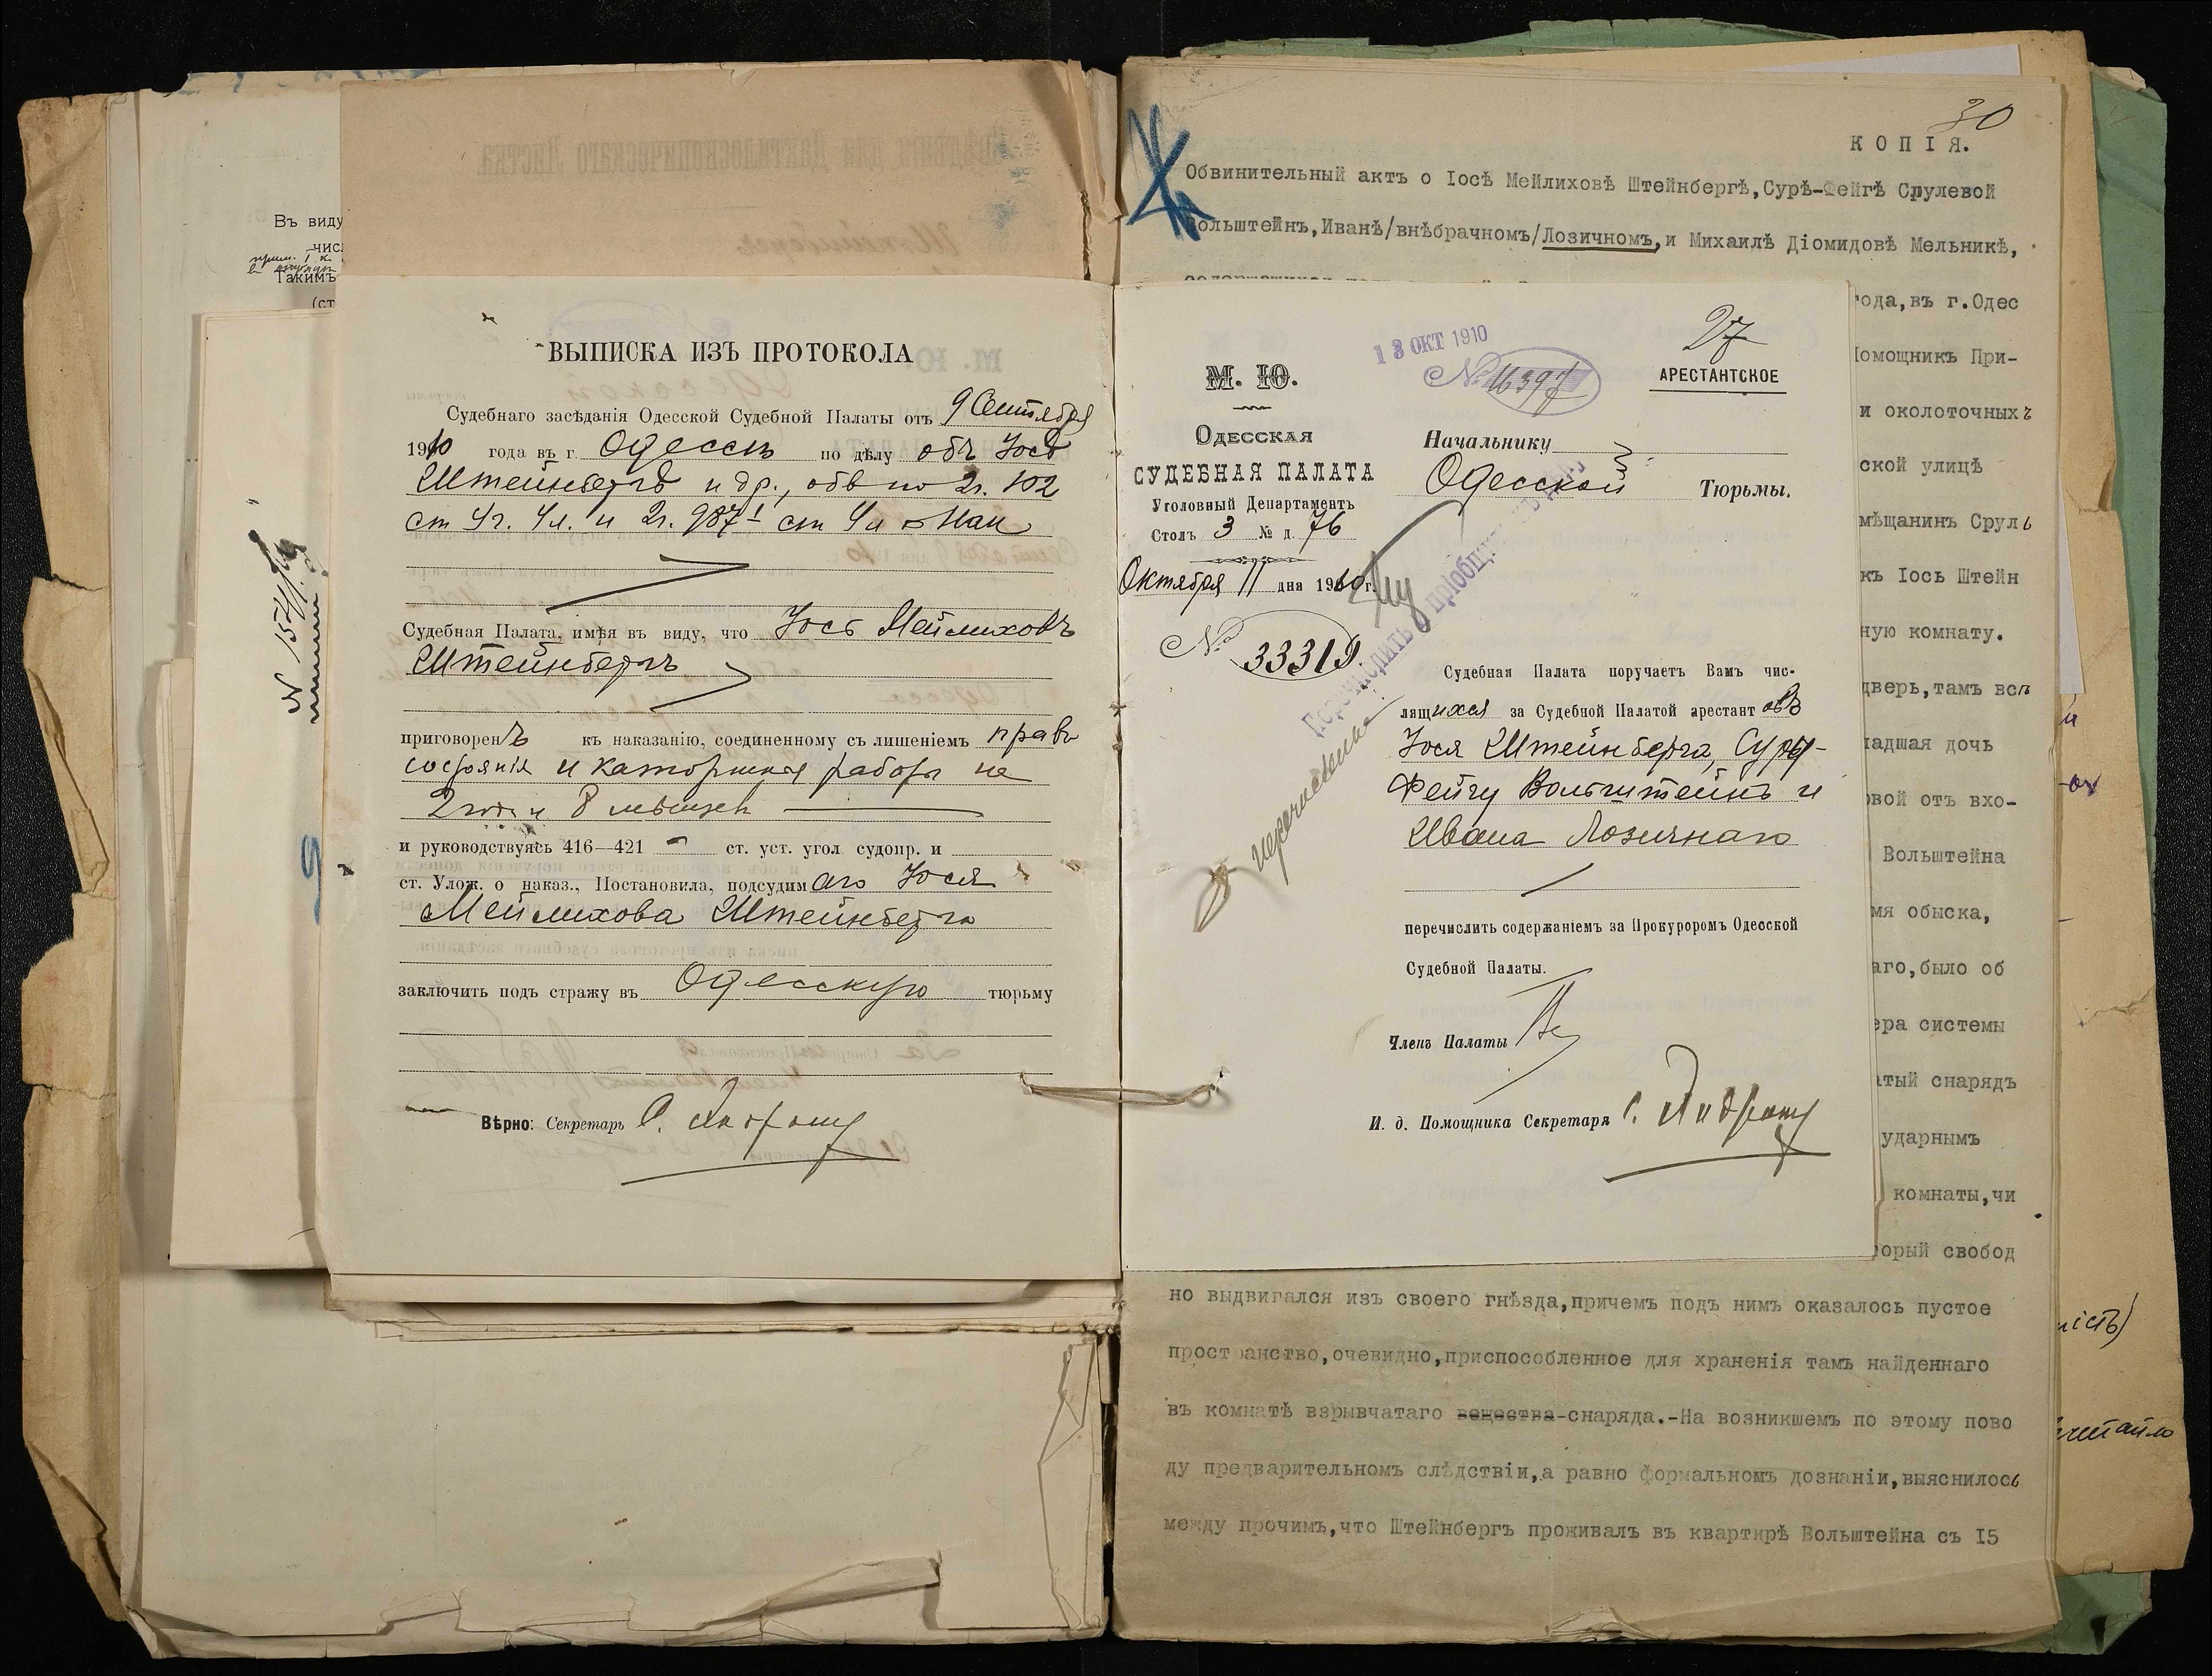 Въ виду
чис
Такимъ
(ст
ВЫПИСКА ИЗЪ ПРОТОКОЛА
Судебнаго засѣданія Одесской Судебной Палаты отъ 9 Сентября
1910 года въ г. Одессѣ по дѣлу объ Іосѣ
Штейнбергѣ и др., обв по 2 ч. 102
ст Уг. Ул. и 2 ч. 987¹ ст Ул о Нак
Судебная Палата, имѣя въ виду, что Іось Мейлиховъ
Штейнбергъ
приговоренъ къ наказанію, соединенному съ лишеніемъ правъ
состоянія и каторжныя работы на
2 года и 8 мѣсяцевъ
и руководствуясь 416—421 ст. уст. угол судопр. и
ст. Улож. о наказ., Постановила, подсудимаго Іося
Мейлихова Штейнберга
заключить подъ стражу въ Одесскую тюрьму
Вѣрно: Секретарь
27
13 ОКТ 1910
№ 16397
АРЕСТАНТСКОЕ
М. Ю.
ОДЕССКАЯ
СУДЕБНАЯ ПАЛАТА
Уголовный Департаментъ
Столъ 3 № д. 76
Октября 11 дня 1910 г.
№ 33319.
Начальнику
Одесской Тюрьмы.
перечислены
Судебная Палата поручаетъ Вамъ чис-
лящихся за Судебной Палатой арестантовъ
Іося Штейнберга, Суру-
Фейгу Вольштейнъ и
Ивана Лозичнаго
перечислить содержаніемъ за Прокуроромъ Одесской
Судебной Палаты.
Членъ Палаты
И. д. Помощника Секретаря
30
КОПІЯ.
Обвинительный актъ о Іосѣ Мейлиховѣ Штейнбергѣ,Сурѣ-Фейгѣ Срулевой
Вольштейнъ,Иванѣ/внѣбрачномъ/Лозичномъ,и Михаилѣ Діомидовѣ Мельникѣ,
года,въ г.Одес
Помощникъ При-
и околоточныхъ
ской улицѣ
мѣщанинъ Сруль
къ Іось Штейн
ную комнату.
дверь,тамъ всѣ
ладшая дочь
вой отъ вхо-
Вольштейна
мя обыска,
аго,было об
ера системы
атый снарядъ
ударнымъ
комнаты,чи
орый свобод
но выдвигался изъ своего гнѣзда,причемъ подъ нимъ оказалось пустое
пространство,очевидно,приспособленное для храненія тамъ найденнаго
въ комнатѣ взрывчатаго вещества-снаряда.-На возникшемъ по этому пово
ду предварительномъ слѣдствіи,а равно формальномъ дознаніи,выяснилось
между прочимъ,что Штейнбергъ проживалъ въ квартирѣ Вольштейна съ 15